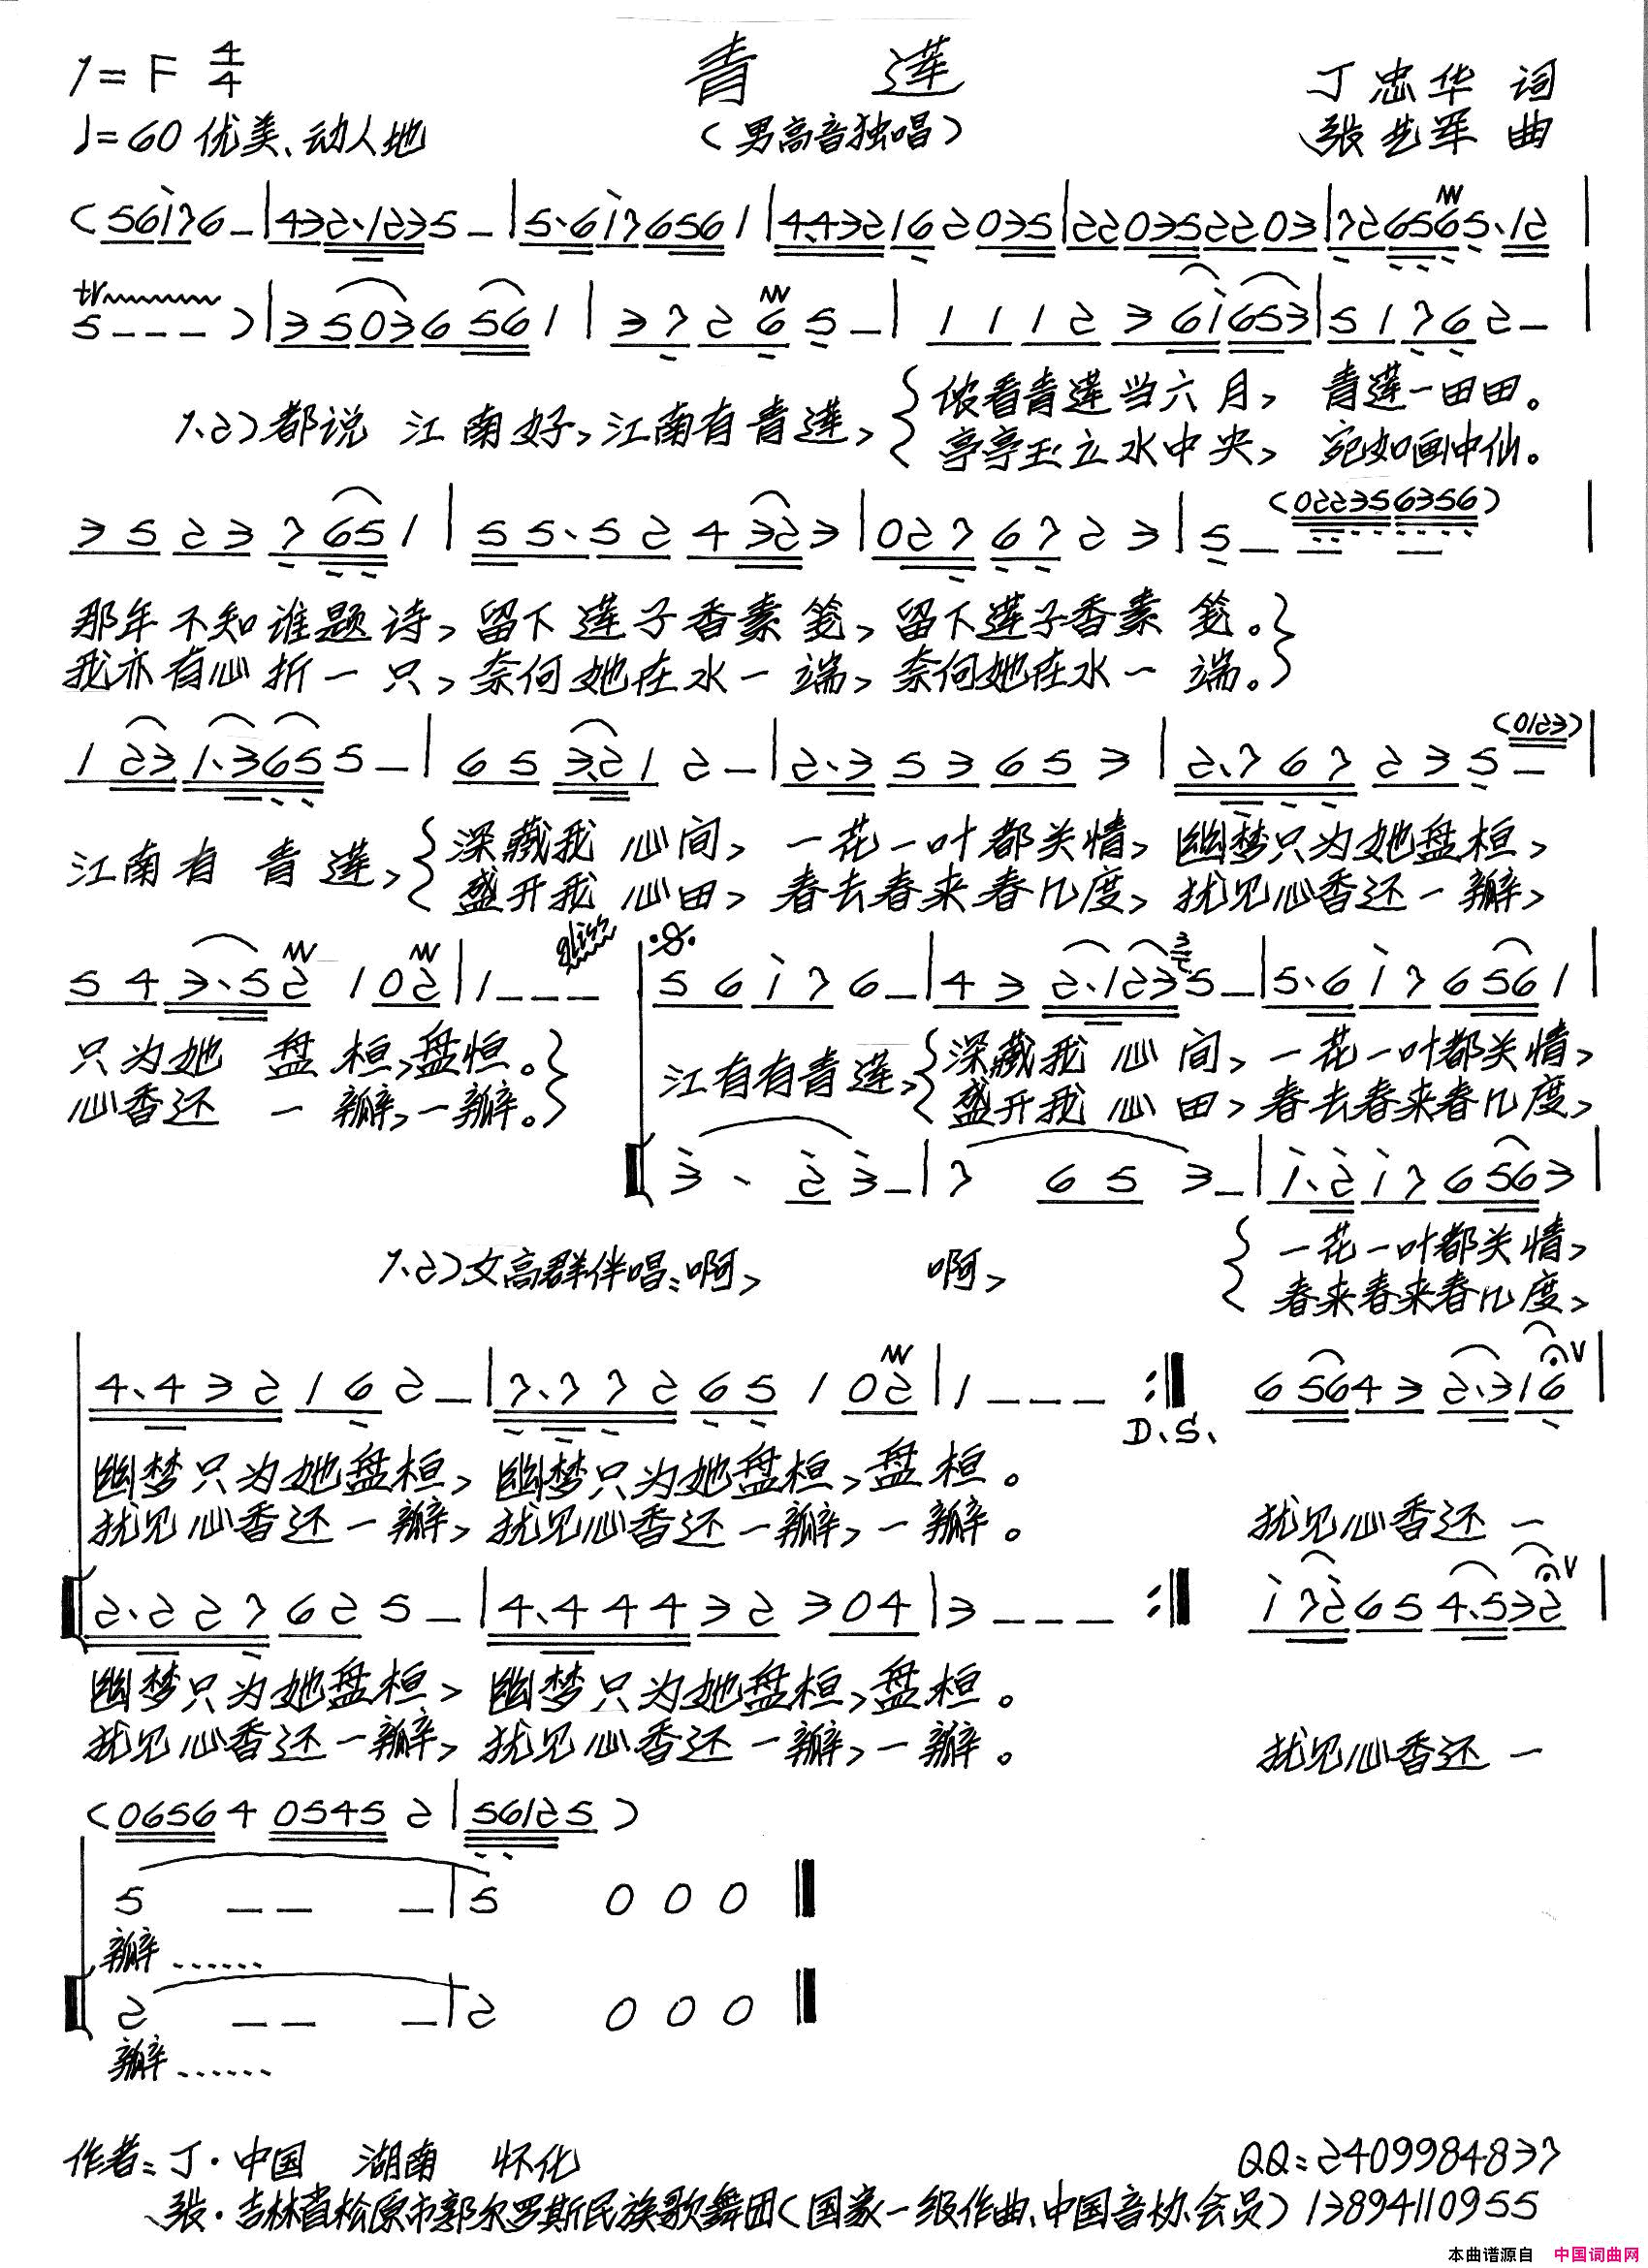 1=F 4/4 青 莲 丁忠华 词
♩=60 优美、动人地 (男高音独唱) 张艺军 曲
(56i76-|432·1235-|5·6i76561|4·432162035|220352203|726565·12|
tr 5---)|35036561|37265-|111236i653|51762-|
1.2)都说 江南好,江南有青莲, 侬看青莲当六月, 青莲一田田。
亭亭玉立水中央, 宛如画中仙。
35237651|55·524323|0276723|5---(022356356)|
那年不知谁题诗,留下莲子香素笺,留下莲子香素笺。
我亦有心折一只,奈何她在水一端,奈何她在水一端。
1231·3655-|653·212-|2·353653|2·767235-(0123)|
江南有 青莲, 深藏我 心间, 一花一叶都关情, 幽梦只为她盘桓,
盛开我 心田, 春去春来春几度, 犹见心香还一瓣,
543·52102|1--- gliss 56i76-|432·1235-|5·6i76561|
只为她 盘桓,盘恒。 江有有青莲, 深藏我 心间, 一花一叶都关情,
心香还 一瓣,一瓣。 盛开我 心田, 春去春来春几度,
3·23-|7653-|i·2i76563|
1.2)女高群伴唱:啊, 啊, 一花一叶都关情,
春来春来春几度,
4·432162-|7·77265102|1---:‖ D.S. 656432·316|
幽梦只为她盘桓, 幽梦只为她盘桓,盘桓。
犹见心香还一瓣, 犹见心香还一瓣,一瓣。 犹见心香还 一
2·227625-|4·44432304|3---:‖ i72654·532|
幽梦只为她盘桓, 幽梦只为她盘桓,盘桓。
犹见心香还一瓣, 犹见心香还一瓣,一瓣。 犹见心香还 一
(06564 05452|56125)
5---|5 0 0 0‖
瓣……
2---|2 0 0 0‖
瓣……
作者:丁·中国 湖南 怀化 QQ:2409984837
张·吉林省松原市郭尔罗斯民族歌舞团(国家一级作曲、中国音协会员)13894110955
本曲谱源自 中国词曲网